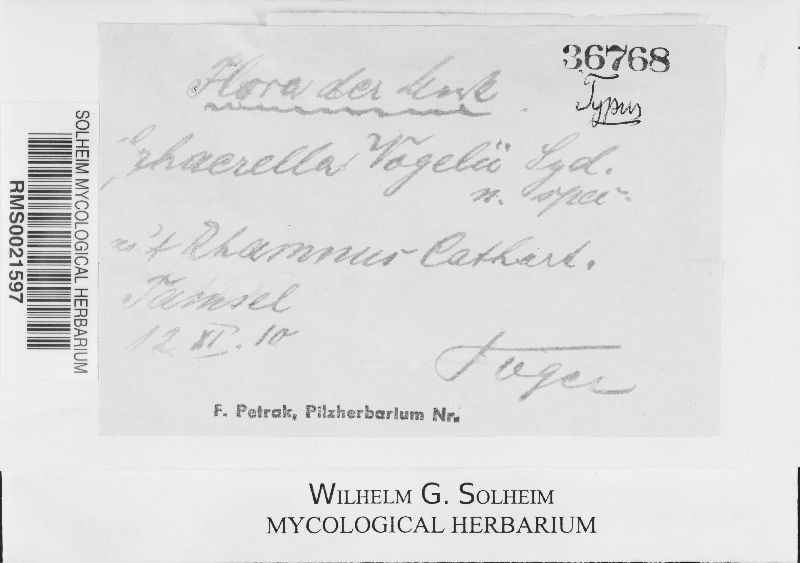 36768
Typus
Flora der Mark
Sphaerella Vogelii Syd.
n. spec.
auf Rhamnus Cathart.
Tamsel
12 XI. 10
F. Petrak, Pilzherbarium Nr.
SOLHEIM MYCOLOGICAL HERBARIUM
RMS0021597
WILHELM G. SOLHEIM
MYCOLOGICAL HERBARIUM